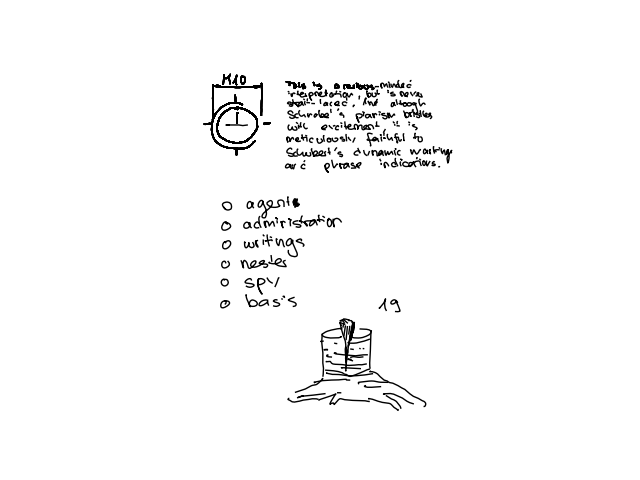 M10
This is a serious-minded
interpretation, but is never
strait-laced. And although
Schnabel's pianism bristles
with excitement it is
meticulously faithful to
Schubert's dynamic markings
and phrase indications.
agents
administration
writings
nester
spy
basis
19